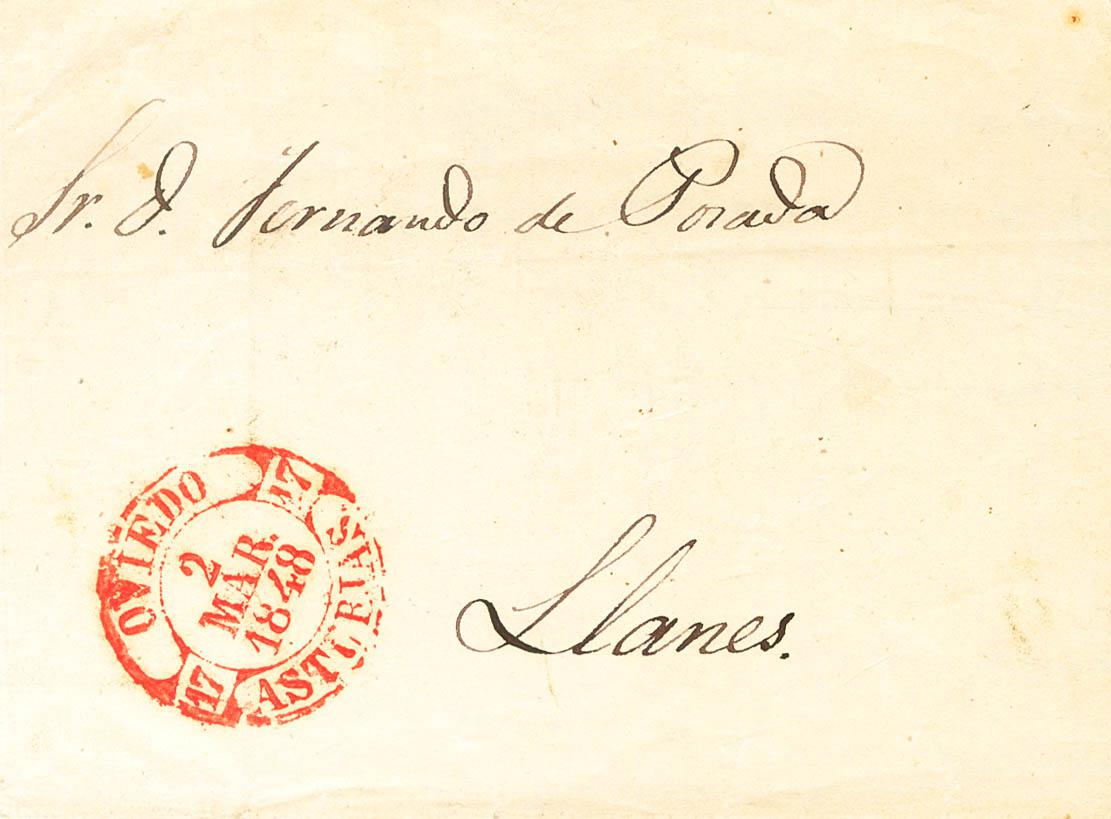 Sr. D. Fernando de Posada
OVIEDO
17
2
MAR.
1848
ASTURIAS
17
Llanes.